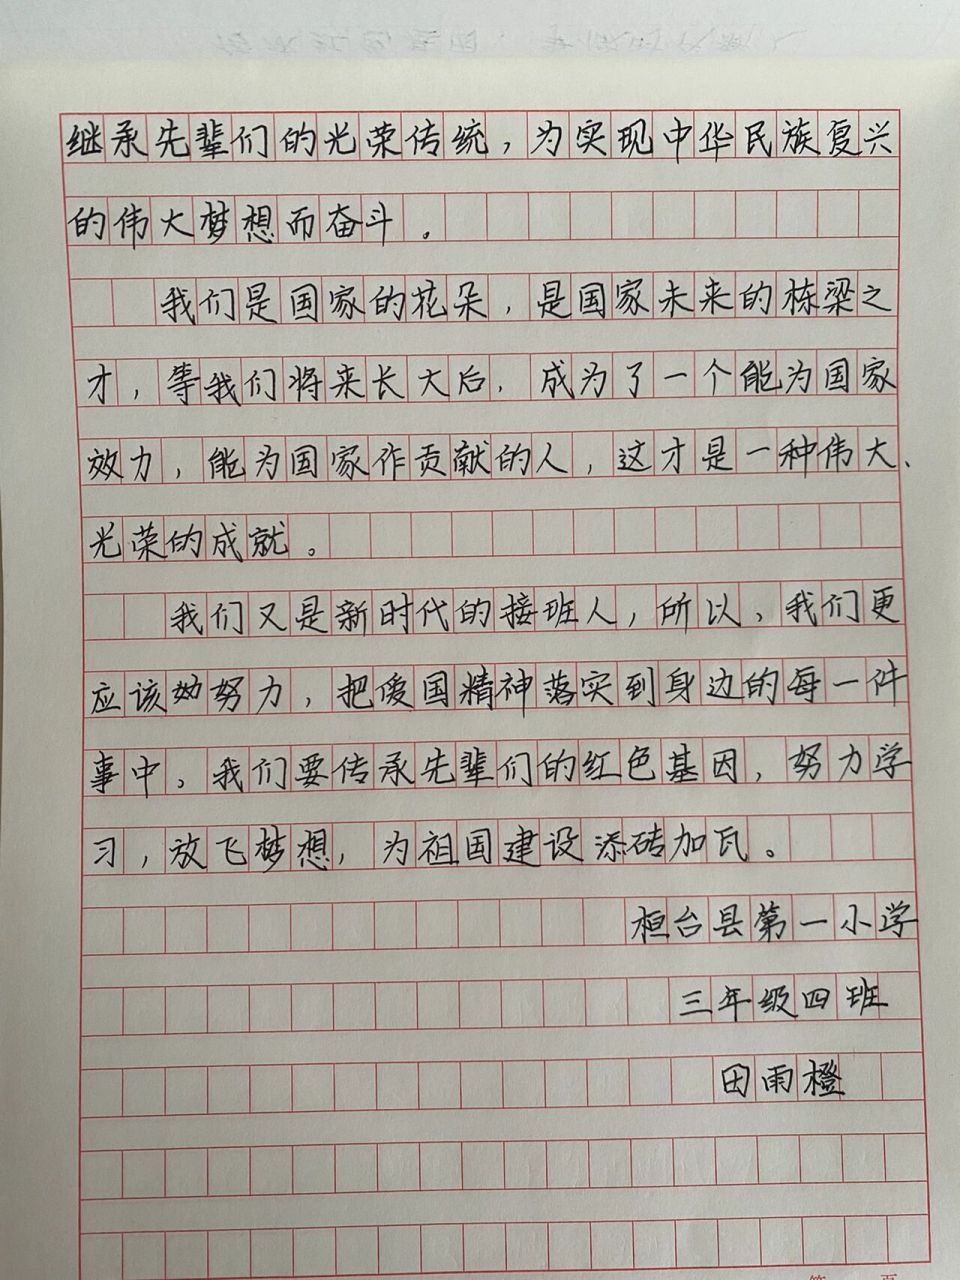 继承先辈们的光荣传统，为实现中华民族复兴
的伟大梦想而奋斗。
我们是国家的花朵，是国家未来的栋梁之
才，等我们将来长大后，成为了一个能为国家
效力，能为国家作贡献的人，这才是一种伟大、
光荣的成就。
我们又是新时代的接班人，所以，我们更
应该努力，把爱国精神落实到身边的每一件
事中。我们要传承先辈们的红色基因，努力学
习，放飞梦想，为祖国建设添砖加瓦。
桓台县第一小学
三年级四班
田雨橙